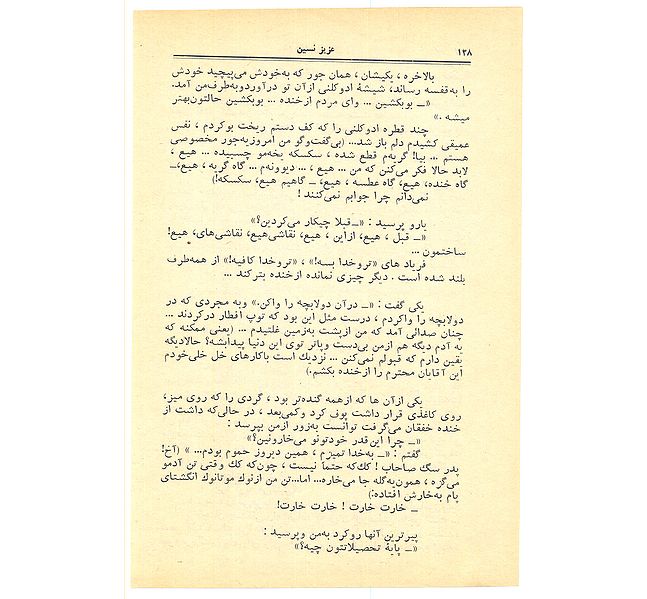 ۱۳۸
عزیز نسین
بالاخره ، یکیشان ، همان جور که به‌خودش می‌پیچید خودش
را به‌قفسه رساند، شیشهٔ ادوکلنی ازآن تو درآوردوبه‌طرف‌من آمد.
«ــ بوبکشین ... وای مردم ازخنده ... بوبکشین حالتون‌بهتر
میشه .»
چند قطره ادوکلنی را که کف دستم ریخت بوکردم ، نفس
عمیقی کشیدم دلم باز شد... (بی‌گفت‌وگو من امروزیه‌جور مخصوصی
هستم .. بیا! گریه‌م قطع شده ، سکسکه یخه‌مو چسبیده ... هیع ،
لابد حالا فکر می‌کنن که من ... هیع ، ... دیوونه‌م ... گاه گریه ، هیع،ــ
گاه خنده، هیع، گاه عطسه ، هیع، ــ گاهیم هیع، سکسکه!)
نمی‌دانم چرا جوابم نمی‌کنند !
یارو پرسید : «ــ‌قبلا چیکار می‌کردین؟»
«ــ قبل ، هیع، ازاین ، هیع، نقاشی‌هیع، نقاشی‌های، هیع!
ساختمون ...
فریاد های «تروخدا بسه!» ، «تروخدا کافیه!» از همه‌طرف
بلند شده است . دیگر چیزی نمانده ازخنده بترکند ...
یکی گفت : «ــ درآن دولابچه را واکن.» وبه مجردی که در
دولابچه را واکردم ، درست مثل این بود که توپ افطار درکردند ...
چنان صدائی آمد که من ازپشت به‌زمین غلتیدم ... (یعنی ممکنه که
یه آدم دیگه هم ازمن بی‌دست وپاتر توی این دنیا پیدابشه؟ حالادیگه
یقین دارم که قبولم نمی‌کنن ... نزدیك است باکارهای خل خلی‌خودم
این آقایان محترم را ازخنده بکشم.)
یکی ازآن ها که ازهمه گنده‌تر بود ، گردی را که روی میز،
روی کاغذی قرار داشت پوف کرد وکمی‌بعد ، در حالی‌که داشت از
خنده خفقان می‌گرفت توانست به‌زور ازمن بپرسد :
«ــ چرا این‌قدر خودتونو می‌خارونین؟»
گفتم : «ــ به‌خدا تمیزم ، همین دیروز حموم بودم... » (آخ!
پدر سگ صاحاب ! کك‌که حتماً نیست ، چون‌که كك وقتی تن آدمو
می‌گزه ، همون‌یه‌گله جا می‌خاره... اما...تن من ازنوك موتانوك انگشتای
پام به‌خارش افتاده:)
ــ خارت خارت ! خارت خارت!
پیرترین آنها روکرد به‌من وپرسید :
«ــ پایهٔ تحصیلاتتون چیه؟»